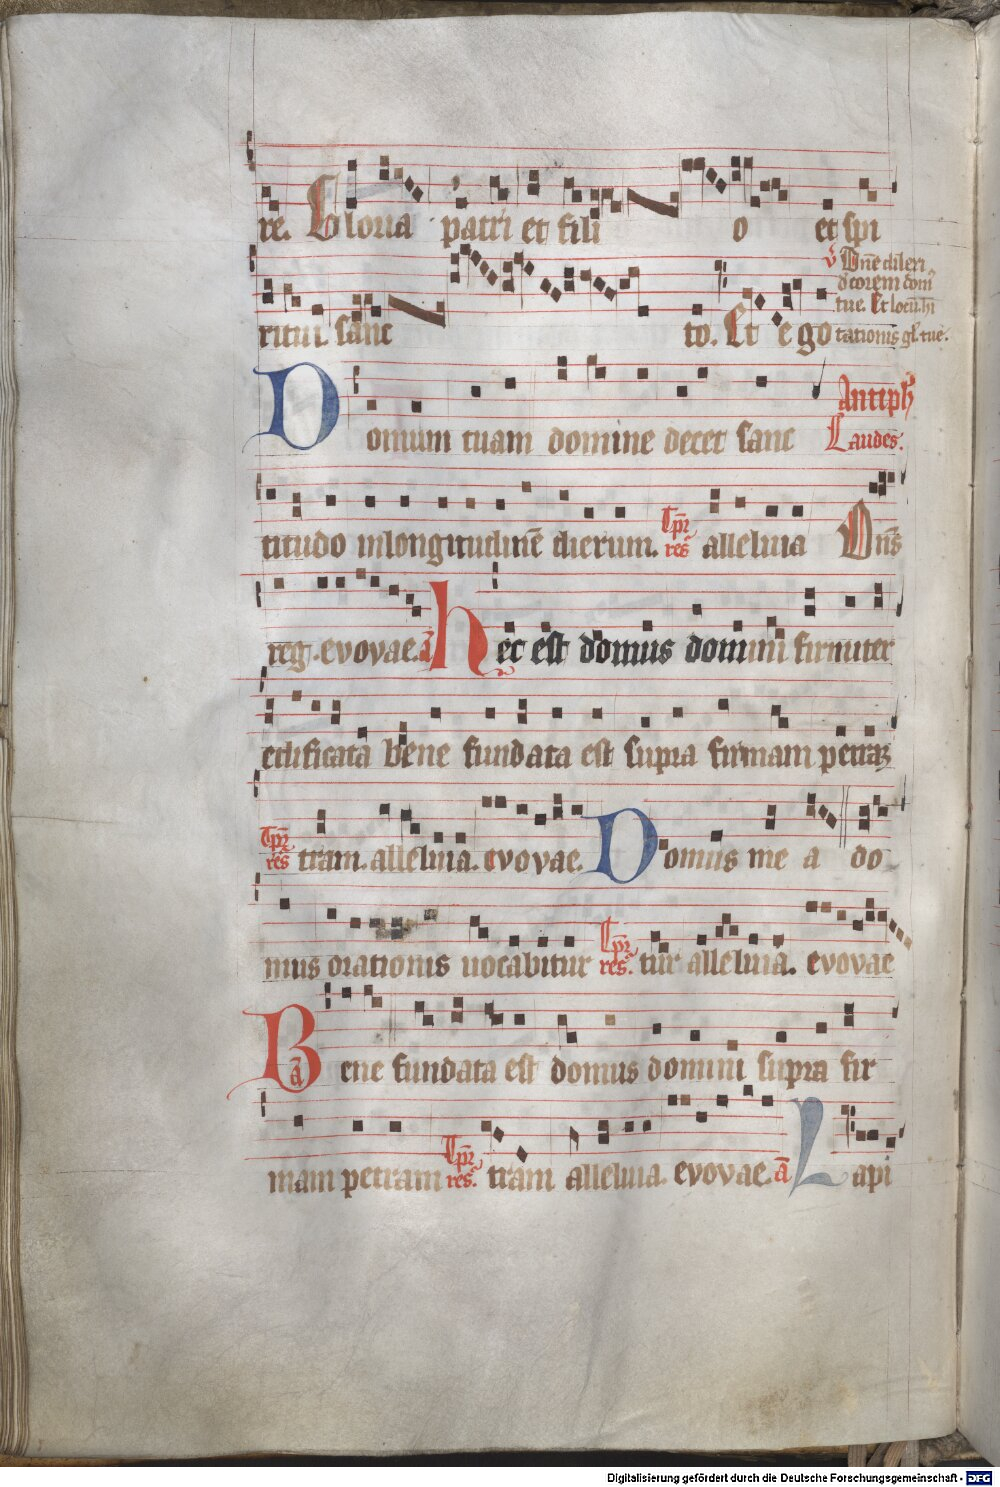 re. Gloria patri et fili o et spi
ritui sanc to. Et ego
v̄ Dn̄e dilexi
decorem dom̄
tue. Et locū. hī
tationis gl̄. tue.
Domum tuam domine decet sanc
Antiph̄
Laudes.
titudo in longitudinē dierum. Tp̄r res̄ alleluia Dn̄s
reg. evovae. ā hec est domus domini firmiter
edificata bene fundata est supra firmam petraꝫ
Tp̄r res̄ tram. alleluia. evovae. Domus me a do
mus orationis uocabitur Tp̄r res̄. tur alleluia. evovae
ā Bene fundata est domus domini supra fir
mam petram Tp̄r res̄. tram alleluia. evovae. ā Lapi
Digitalisierung gefördert durch die Deutsche Forschungsgemeinschaft - DFG